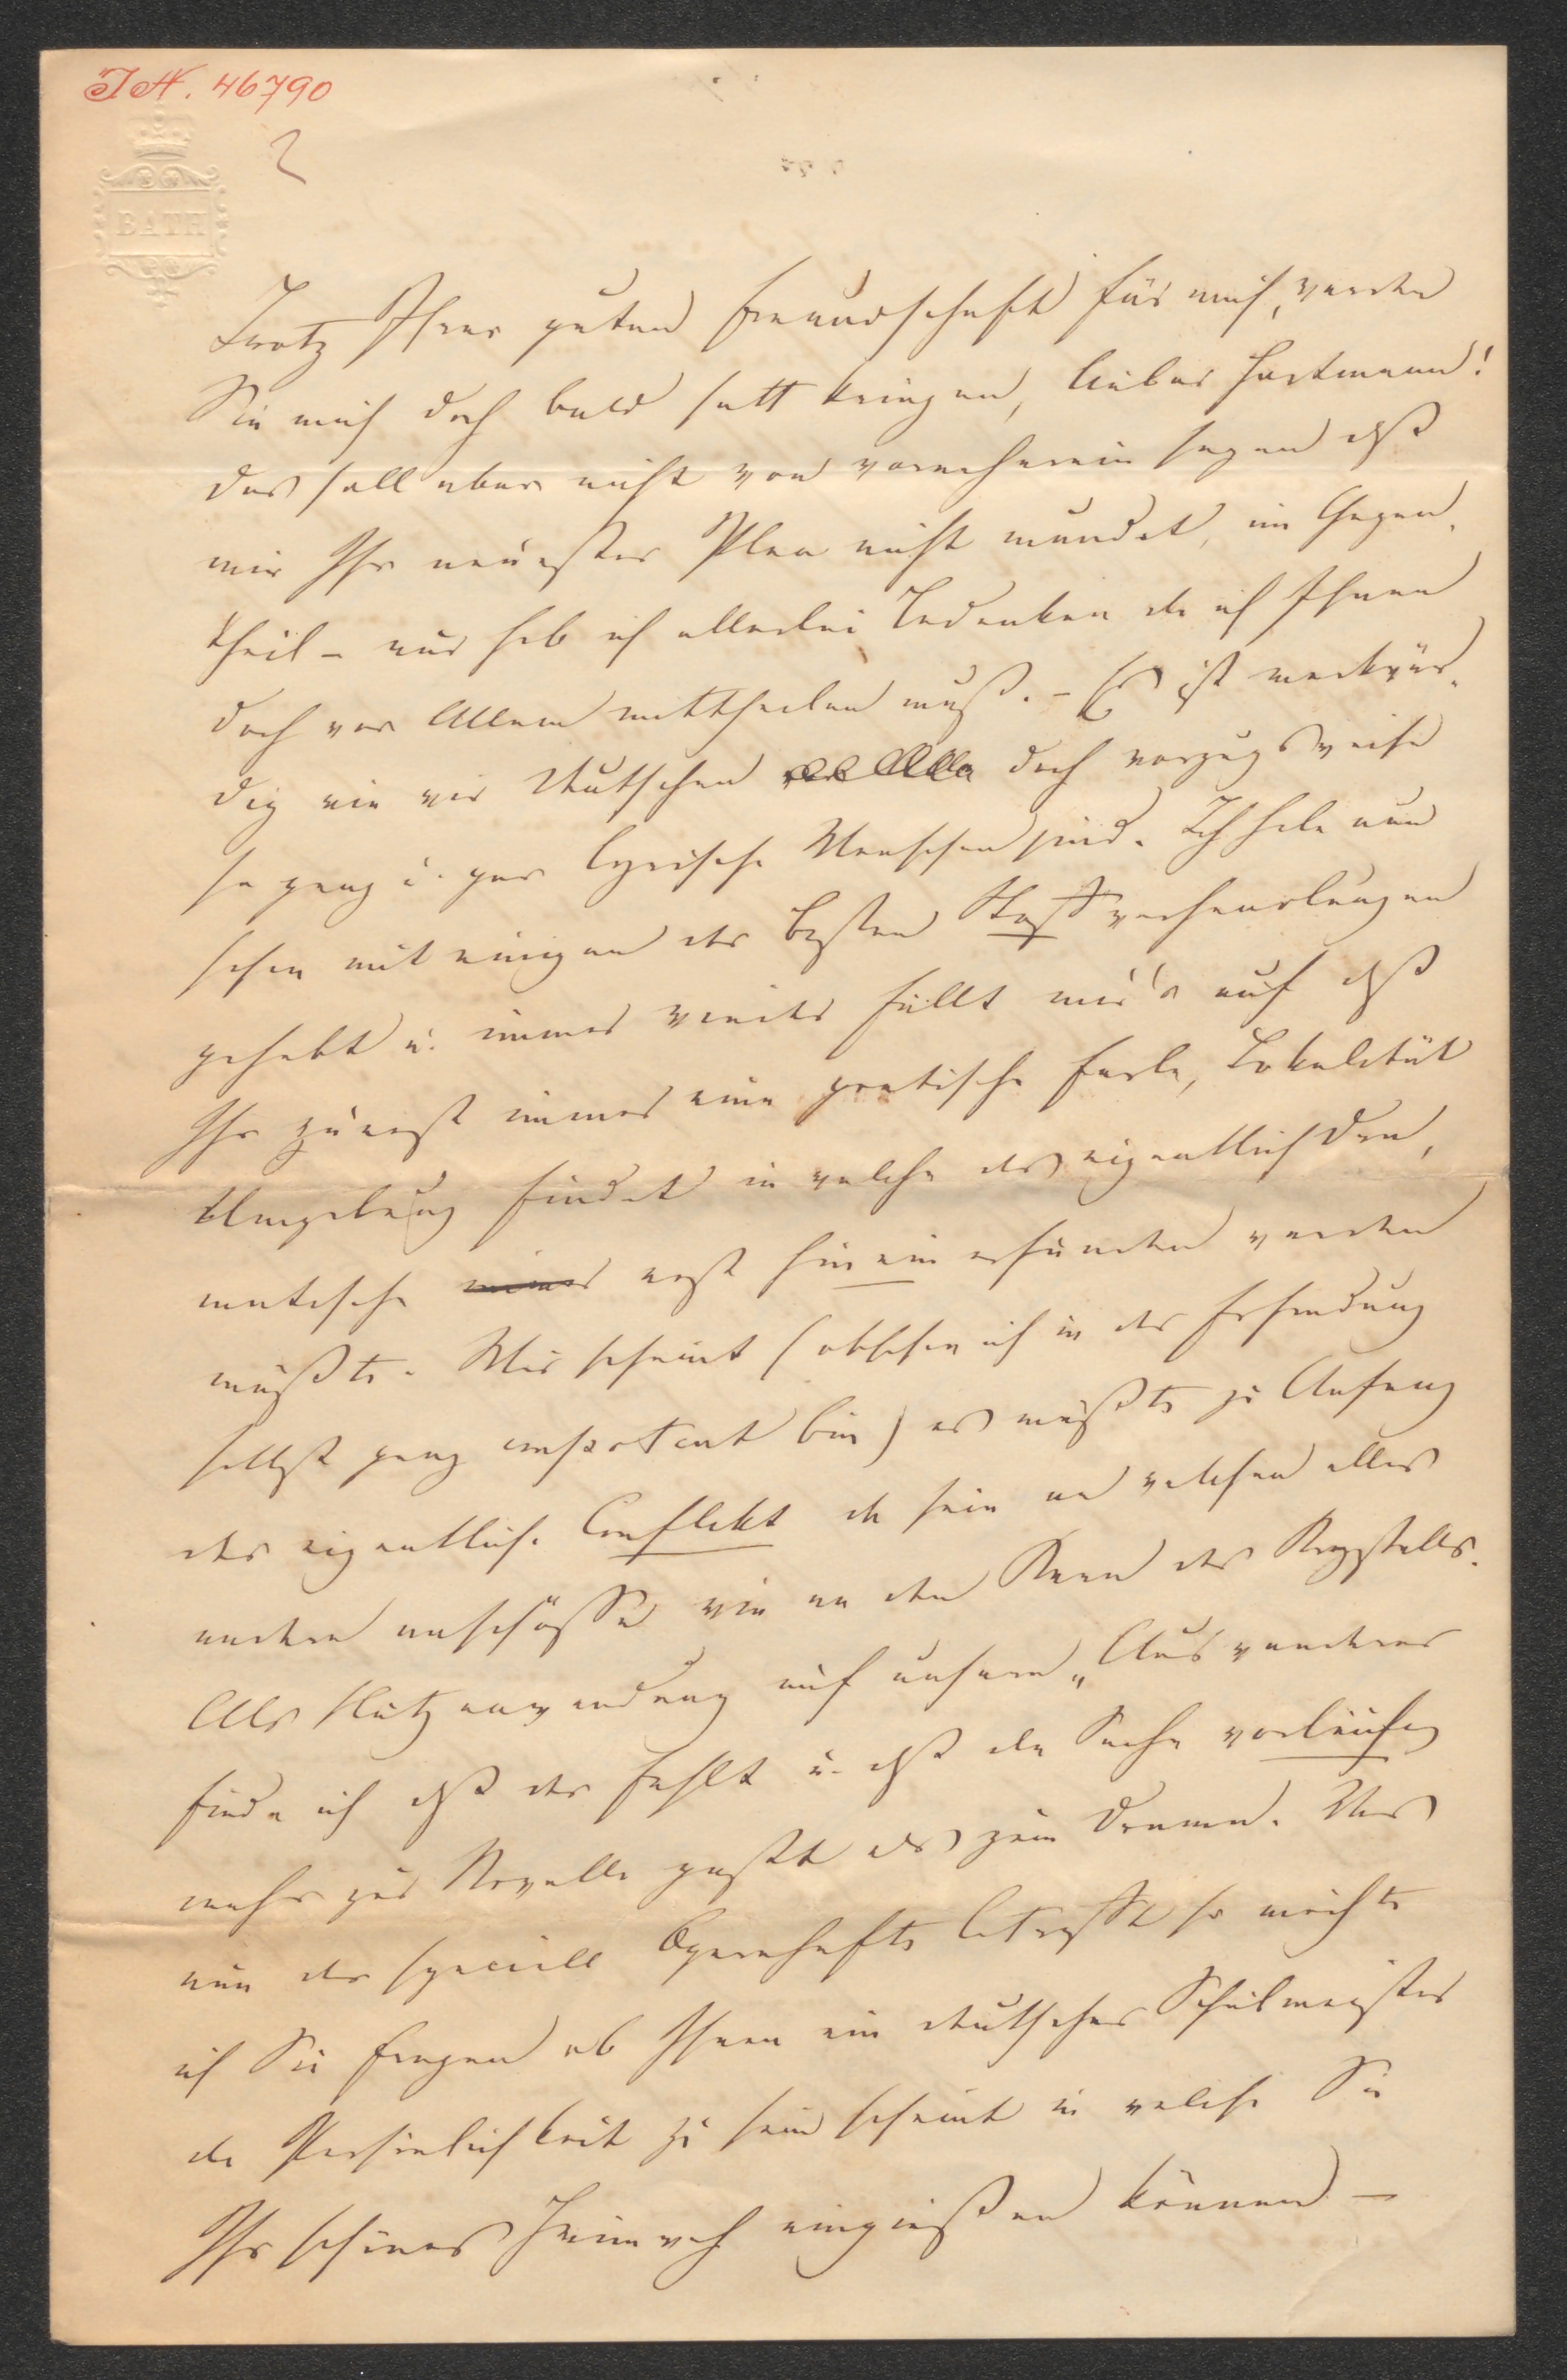 I.N. 46790
2
BATH
Trotz Ihrer guten Freundschaft für mich, werden
Sie mich doch bald satt kriegen, lieber Hartmann!
das soll aber nicht von vorneherein sagen daß
mir Ihr neuester Plan nicht mundet, im Gegen-
theil – nur hab ich allerlei Bedenken die ich Ihnen
doch vor Allem mittheilen muß. – Es ist merkwür-
dig wie wir Deutschen doch vorzugsweise
so ganz u. gar lyrische Menschen sind. Ich habe nun
schon mit einigen der besten Stoffverhandlungen
gehabt u. immer wieder fällt mir's auf daß
Ihr zuerst immer eine poetische Farbe, Lokalität
Umgebung findet in welche das eigentlich Dra-
matische immer erst hinein erfunden werden
müßte. Mir scheint (obschon ich in der Erfindung
selbst ganz impotent bin) es müßte zu Anfang
der eigentliche Conflikt da sein an welchen alles
andere anschösse wie an den Kern des Krystalls.
Als Nutzanwendung auf unsern „Auswanderer
finde ich daß der fehlt u. daß die Sache vorläufig
mehr zur Novelle paßt als zum Drama. Was
nun das speciell Opernhafte betrifft so möchte
ich Sie fragen ob Ihnen ein deutscher Schulmeister
die Persönlichkeit zu sein scheint in welche Sie
Ihr schönes Heimweh eingießen können –